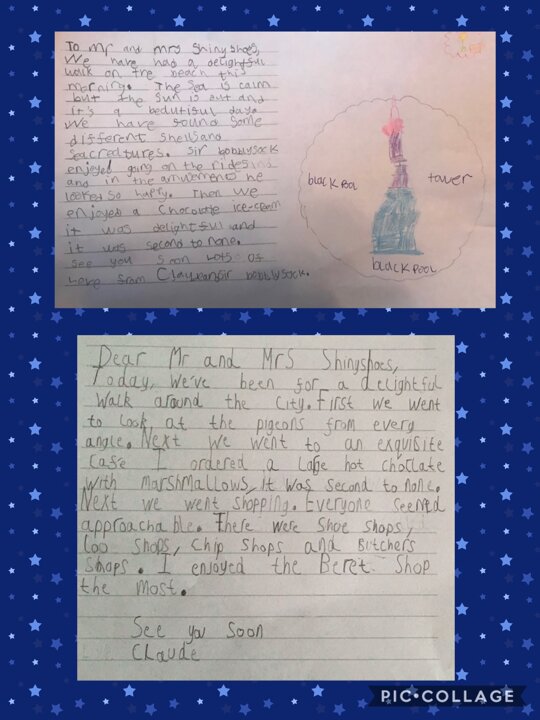 To Mr and mrs Shinyshoes,
We have had a delightful
walk on the beach this
morning. The Sea is calm
but the sun is out and
it's a beautiful day.
We have found some
different shells and
Seacreatures. Sir bobblysock
enjoyed going on the rides
and in the amusements he
looked so happy. Then we
enjoyed a Chocolate ice-cream
it was delightful and
it was second to none.
See you soon Lots of
Love from Claude Sir bobblysock.
blackpool tower
blackpool
Dear Mr and Mrs Shinyshoes,
Today, we've been for a delightful
walk around the city. First we went
to look at the pigeons from every
angle. Next we went to an exquisite
Cafe I ordered a large hot choclate
with marshmallows, It was second to none.
Next we went shopping. Everyone seemed
approachable. There were Shoe shops,
Loo Shops, Chip Shops and Butchers
Shops. I enjoyed the Beret Shop
the most.
See you Soon
Claude
PIC•COLLAGE